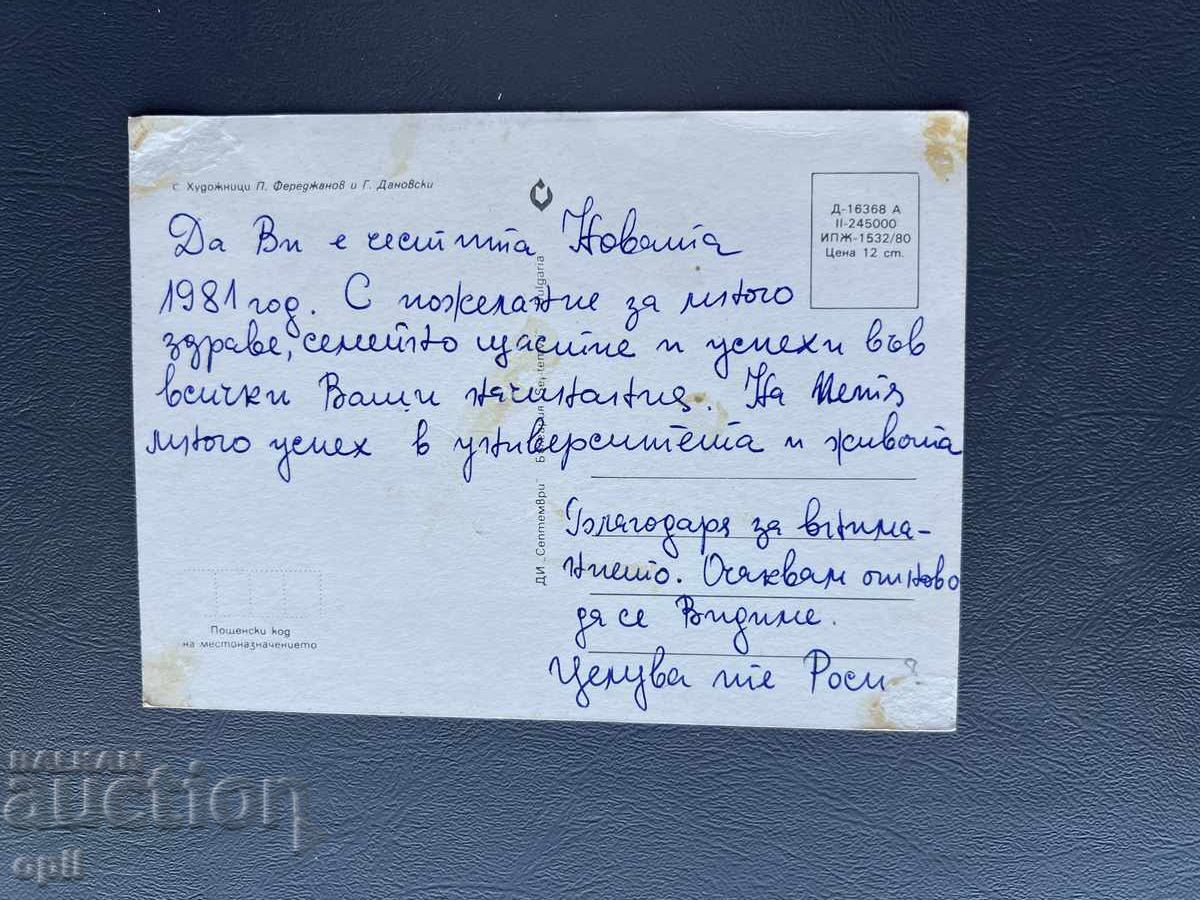 с. Художници П. Фереджанов и Г. Дановски
Д-16368 А
II-245000
ИПЖ-1532/80
Цена 12 ст.
Да Ви е честита Новата
1981 год. С пожелание за много
здраве, семейно щастие и успехи във
всички Ваши начинания. На Петя
много успех в университета и живота
Благодаря за внима-
нието. Очаквам отново
да се видиме.
Целува те Роси
ДИ „Септември“
Bulgaria
Пощенски код
на местоназначението
БАЛКАН
auction
opll